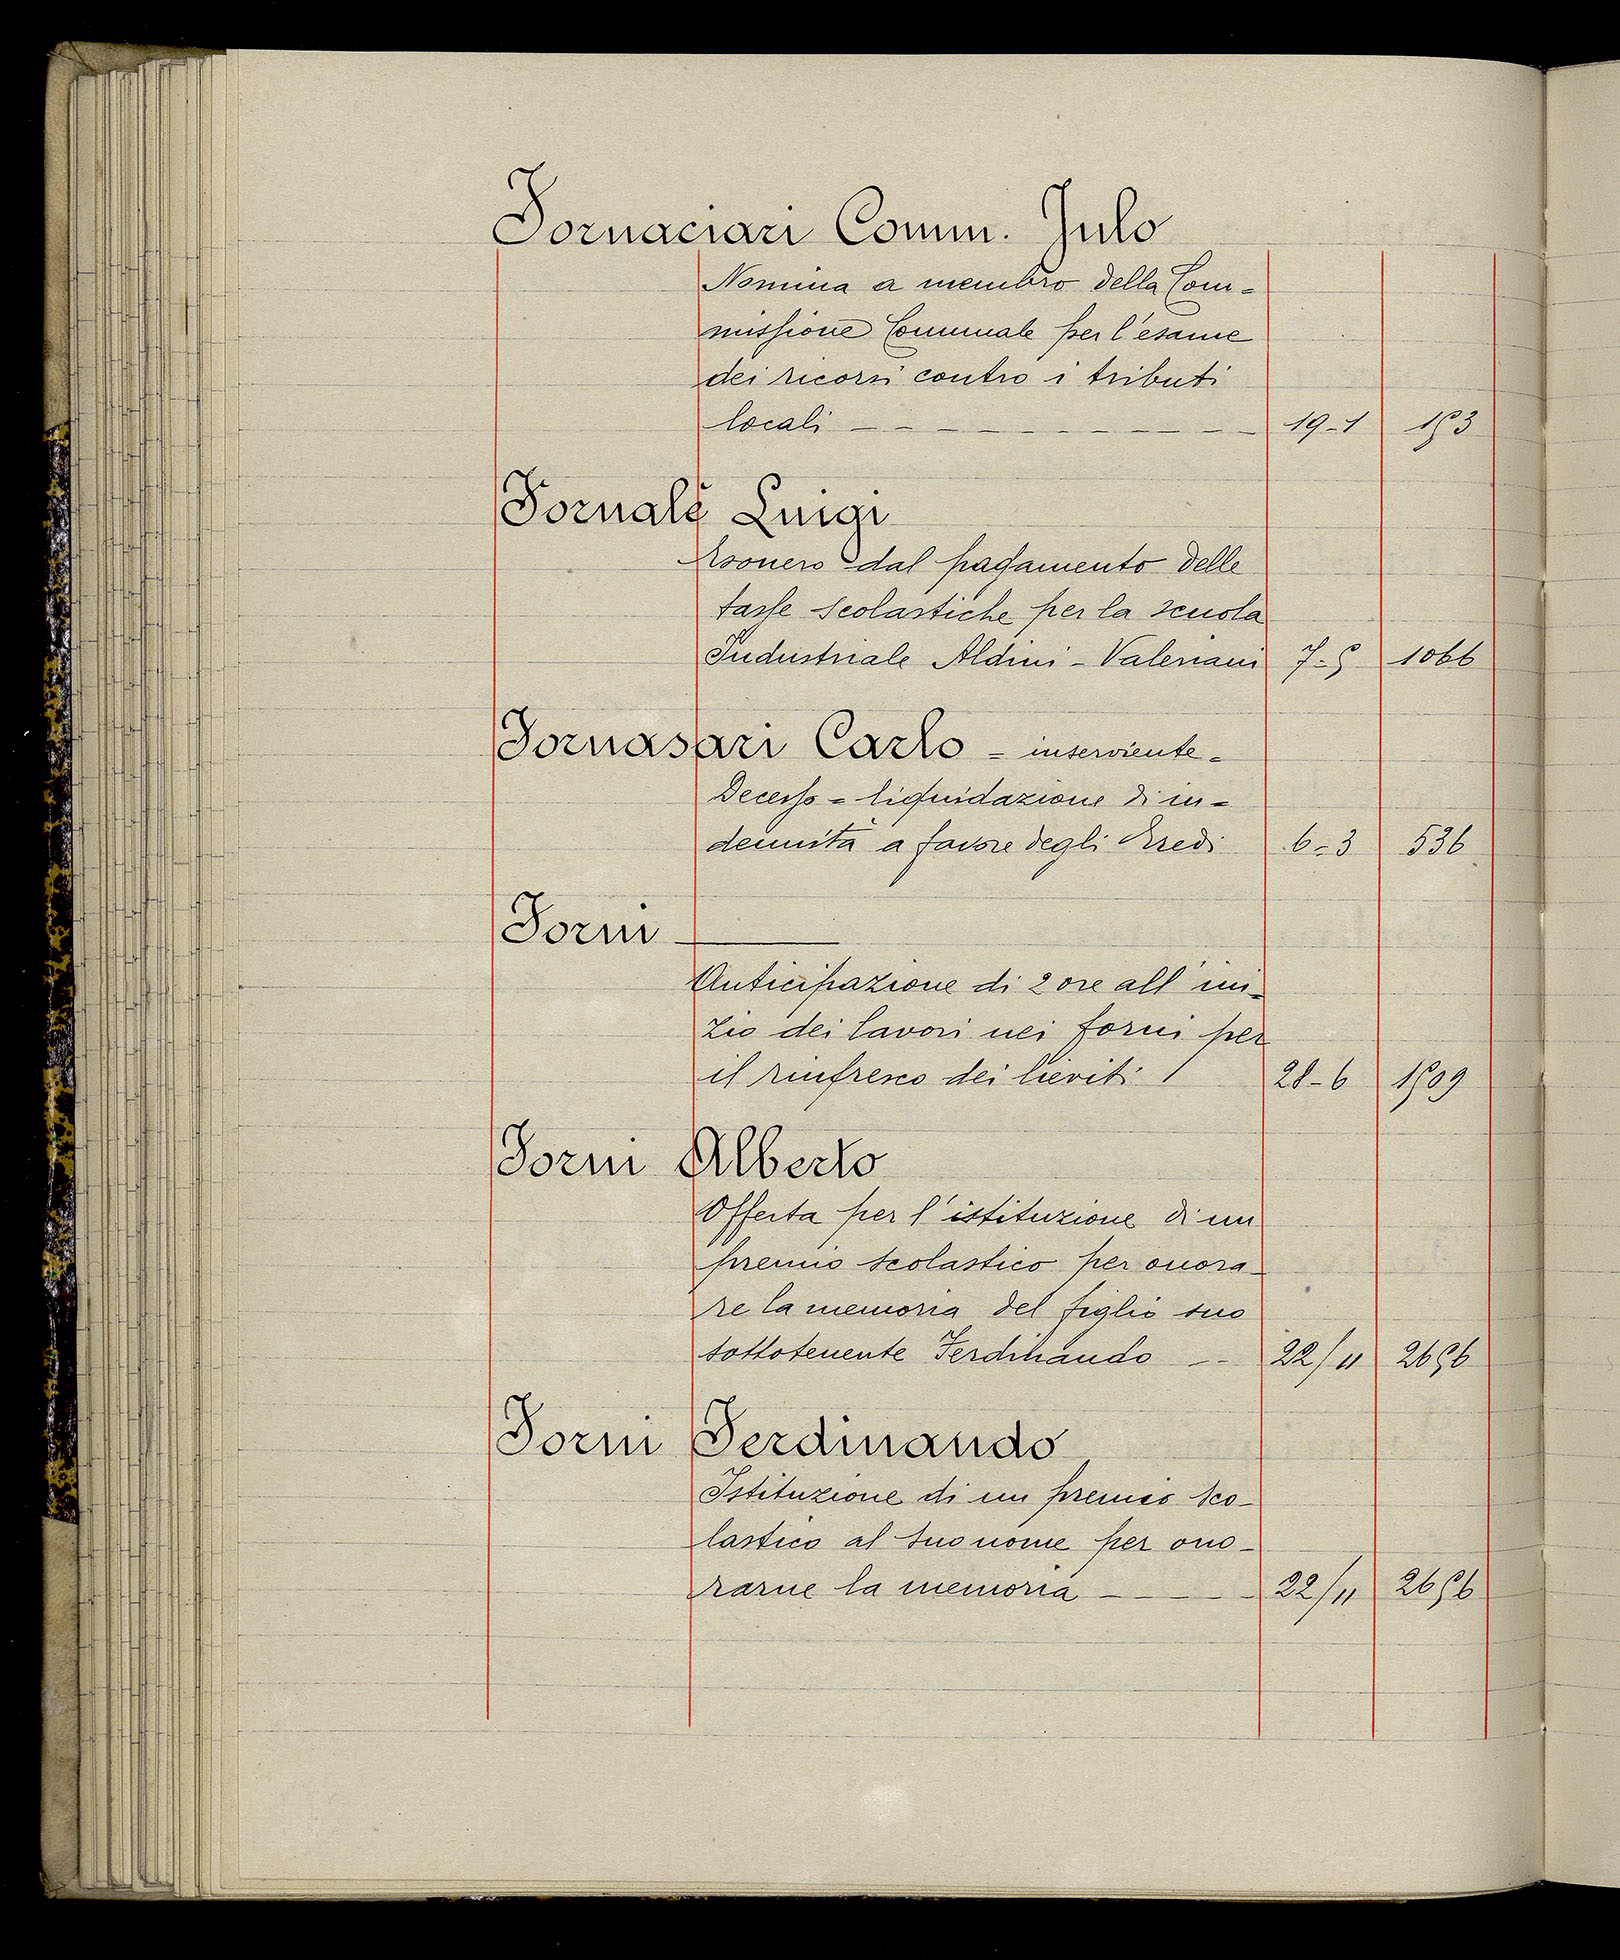 Fornaciari Comm. Julo
Nomina a membro della Com=
missione Comunale per l'esame
dei ricorsi contro i tributi
locali — — — — — — — — — 19-1 153
Fornalè Luigi
Esonero dal pagamento delle
tasse scolastiche per la scuola
Industriale Aldini - Valeriani 7=5 1066
Fornasari Carlo = inserviente =
Decesso = liquidazione di in=
dennità a favore degli Eredi 6=3 536
Forni ———
Anticipazione di 2 ore all'ini-
zio dei lavori nei forni per
il rinfresco dei lieviti 28-6 1509
Forni Alberto
Offerta per l'istituzione di un
premio scolastico per onora-
re la memoria del figlio suo
sottotenente Ferdinando -- 22/11 2656
Forni Ferdinando
Istituzione di un premio sco-
lastico al suo nome per ono-
rarne la memoria — — — — 22/11 2656